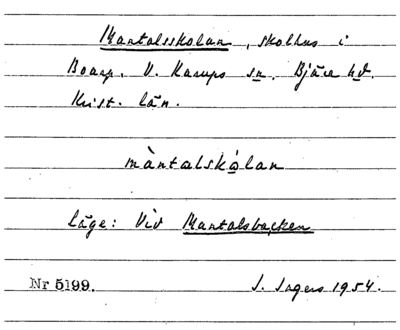 Mantalsskolan, skolhus i
Boarp, V. Karups sn. Bjäre hd.
Krist. län.
màntalskålan
Läge: Vid Mantalsbacken
Nr 5199. J. Ingers 1954.